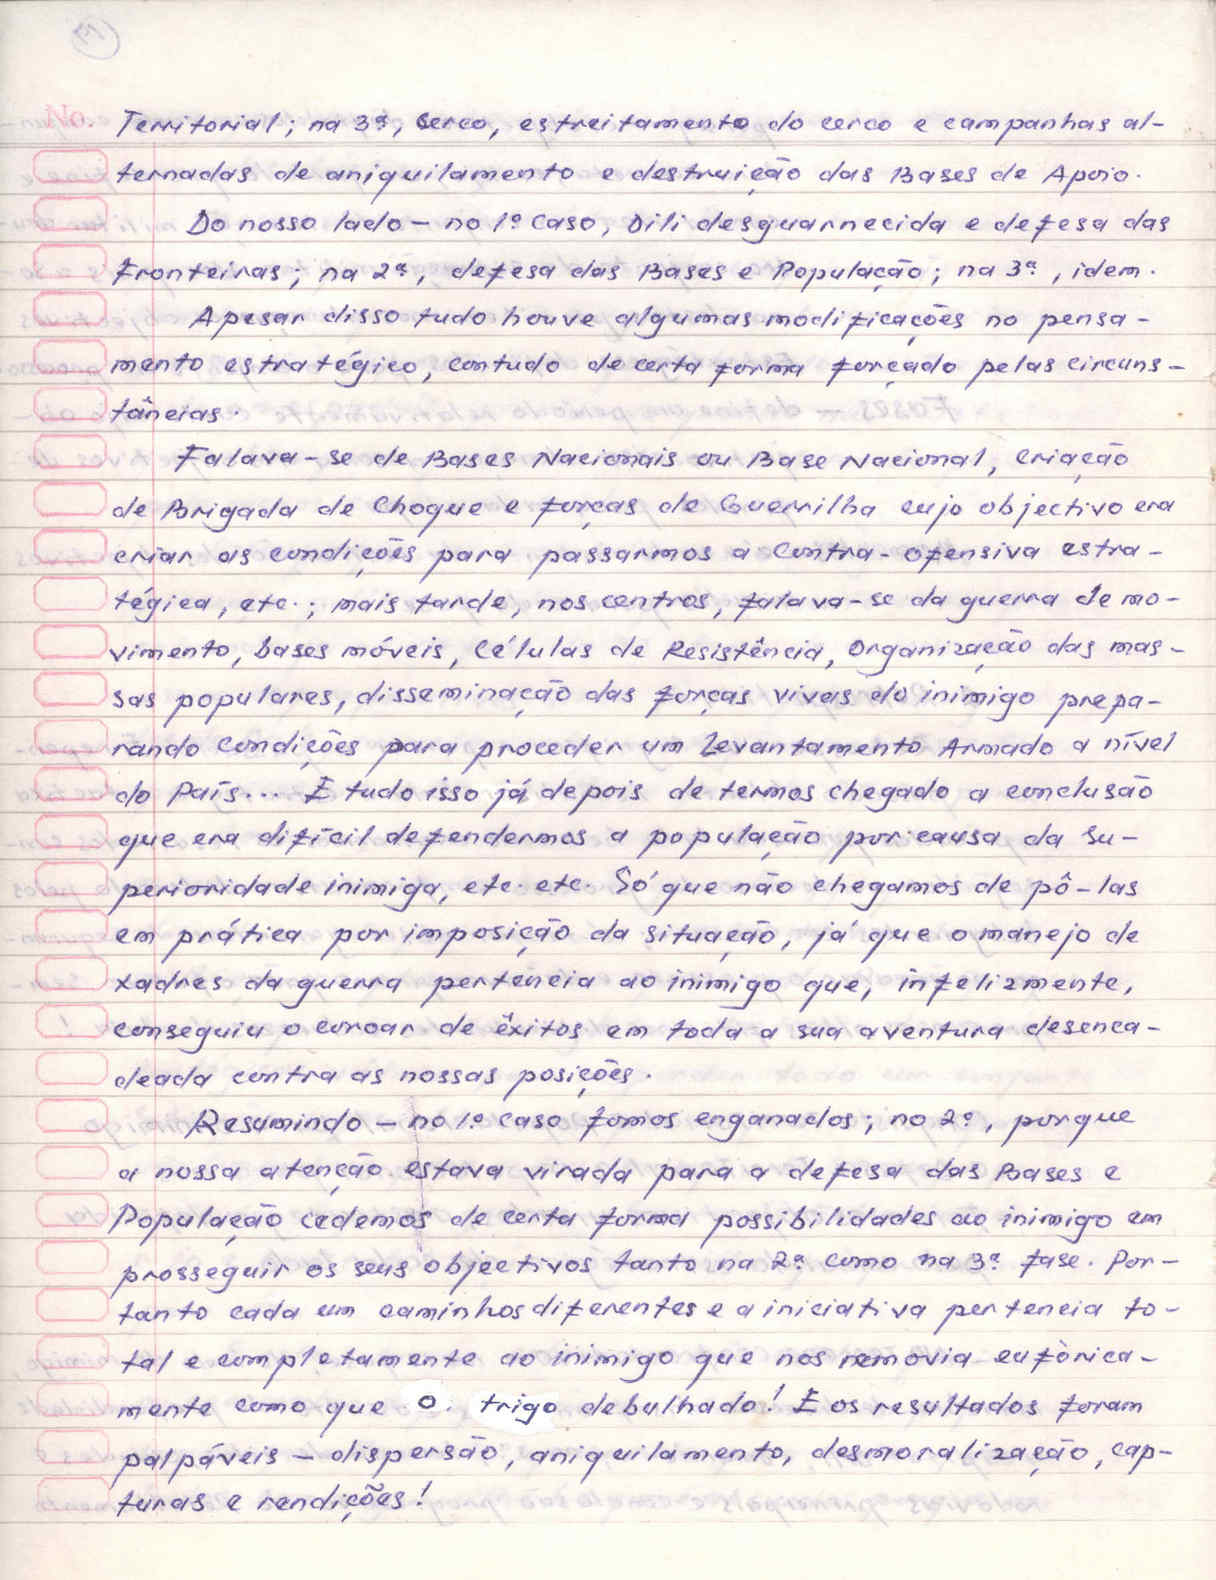 Territorial; na 3ª, Cerco, estreitamento do cerco e campanhas al-
ternadas de aniquilamento e destruição das Bases de Apoio.
Do nosso lado - no 1º caso, Dili desguarnecida e defesa das
Fronteiras; na 2ª, defesa das Bases e População; na 3ª, idem.
Apesar disso tudo houve algumas modificações no pensa-
mento estratégico, contudo de certa forma forçado pelas circuns-
tâncias.
Falava-se de Bases Nacionais ou Base Nacional, criação
de Brigada de Choque e forças de Guerrilha cujo objectivo era
criar as condições para passarmos a Contra-ofensiva estra-
tégica, etc.; mais tarde, nos centros, falava-se da guerra de mo-
vimento, bases móveis, Células de Resistência, Organização das mas-
sas populares, disseminação das forças vivas do inimigo prepa-
rando condições para proceder um Levantamento Armado a nível
do País... E tudo isso já depois de termos chegado a conclusão
que era difícil defendermos a população por causa da su-
perioridade inimiga, etc. etc. Só que não chegamos de pô-las
em prática por imposição da situação, já que o manejo de
xadres da guerra pertencia ao inimigo que, infelizmente,
conseguiu o coroar de êxitos em toda a sua aventura desenca-
deada contra as nossas posições.
Resumindo - no 1º caso fomos enganados; no 2º, porque
a nossa atenção estava virada para a defesa das Bases e
População cedemos de certa forma possibilidades ao inimigo em
prosseguir os seus objectivos tanto na 2ª como na 3ª fase. Por-
tanto cada um caminhos diferentes e a iniciativa pertencia to-
tal e completamente ao inimigo que nos removia eufòrica-
mente como que o trigo debulhado! E os resultados foram
palpáveis - dispersão, aniquilamento, desmoralização, cap-
turas e rendições!